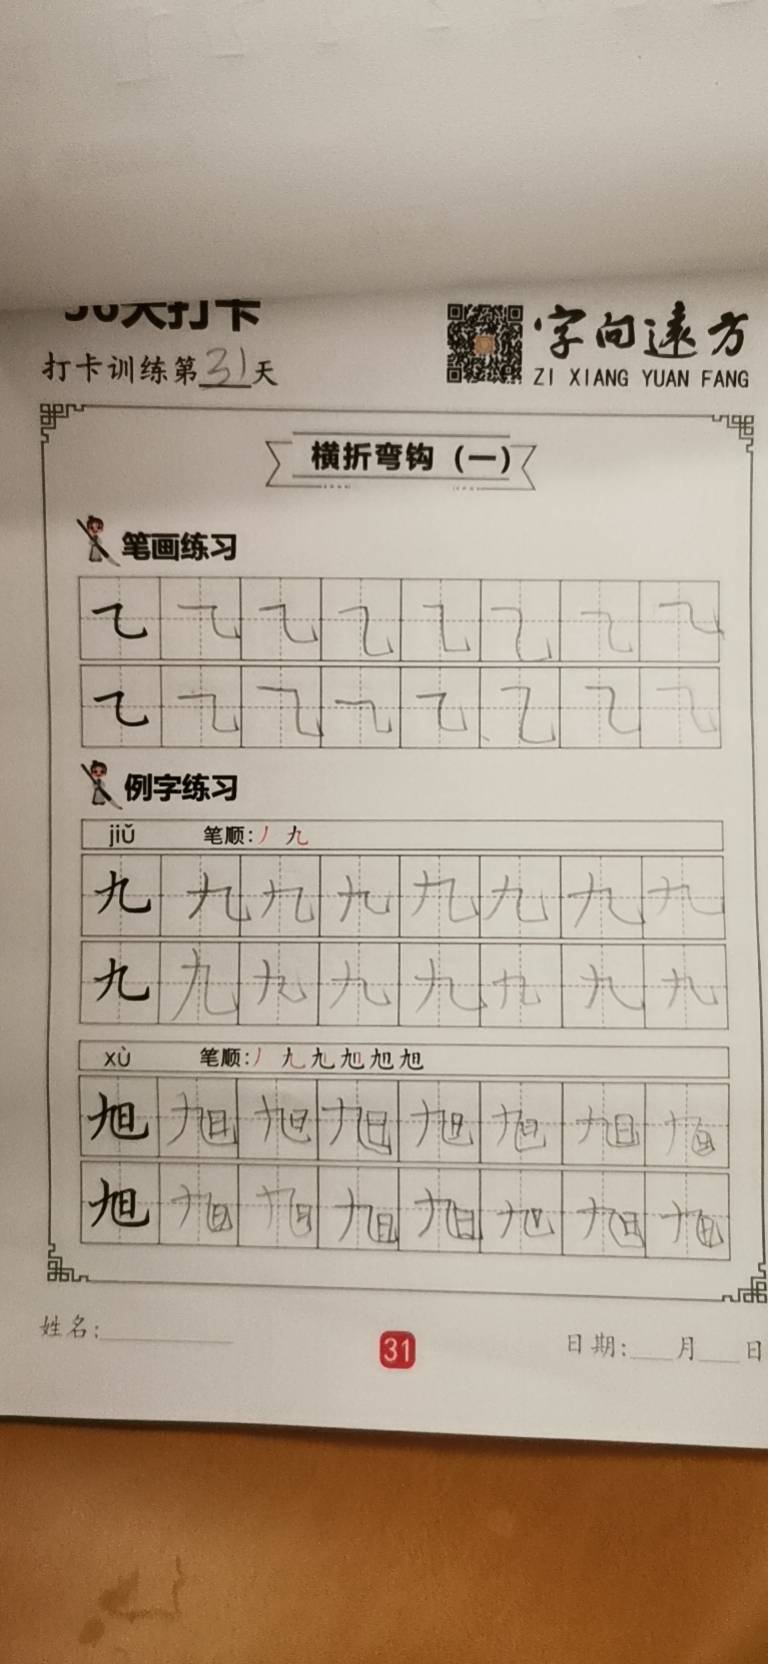 天打卡
字向远方
打卡训练第31天
ZI XIANG YUAN FANG
横折弯钩（一）
笔画练习
㇈ ㇈ ㇈ ㇈ ㇈ ㇈ ㇈ ㇈
㇈ ㇈ ㇈ ㇈ ㇈ ㇈ ㇈ ㇈
例字练习
jiǔ 笔顺:丿 九
九 九 九 九 九 九 九 九
九 九 九 九 九 九 九 九
xù 笔顺:丿 九 九 旭 旭 旭
旭 旭 旭 旭 旭 旭 旭 旭
旭 旭 旭 旭 旭 旭 旭 旭
姓名:
31
日期: 月 日